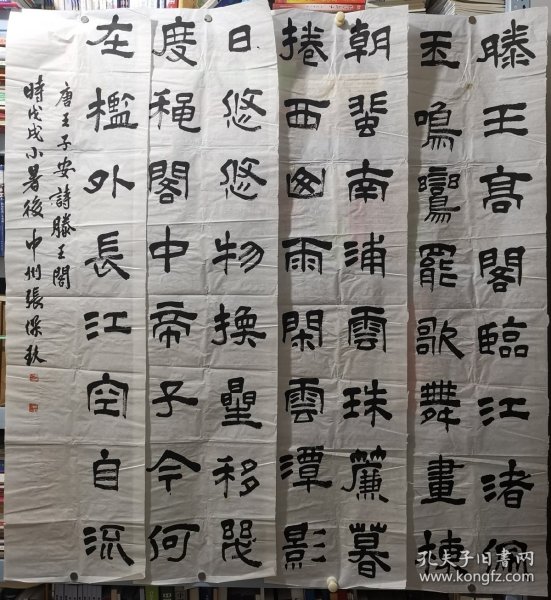 滕王高閣臨江渚佩
玉鳴鸞罷歌舞畫棟
朝蜚南浦雲珠簾暮
捲西山雨閑雲潭影
日悠悠物換星移幾
度穐閣中帝子今何
在檻外長江空自流
唐王子安詩滕王閣
時戊戌小暑後中州張
孔夫子旧书网
www.kongfz.com